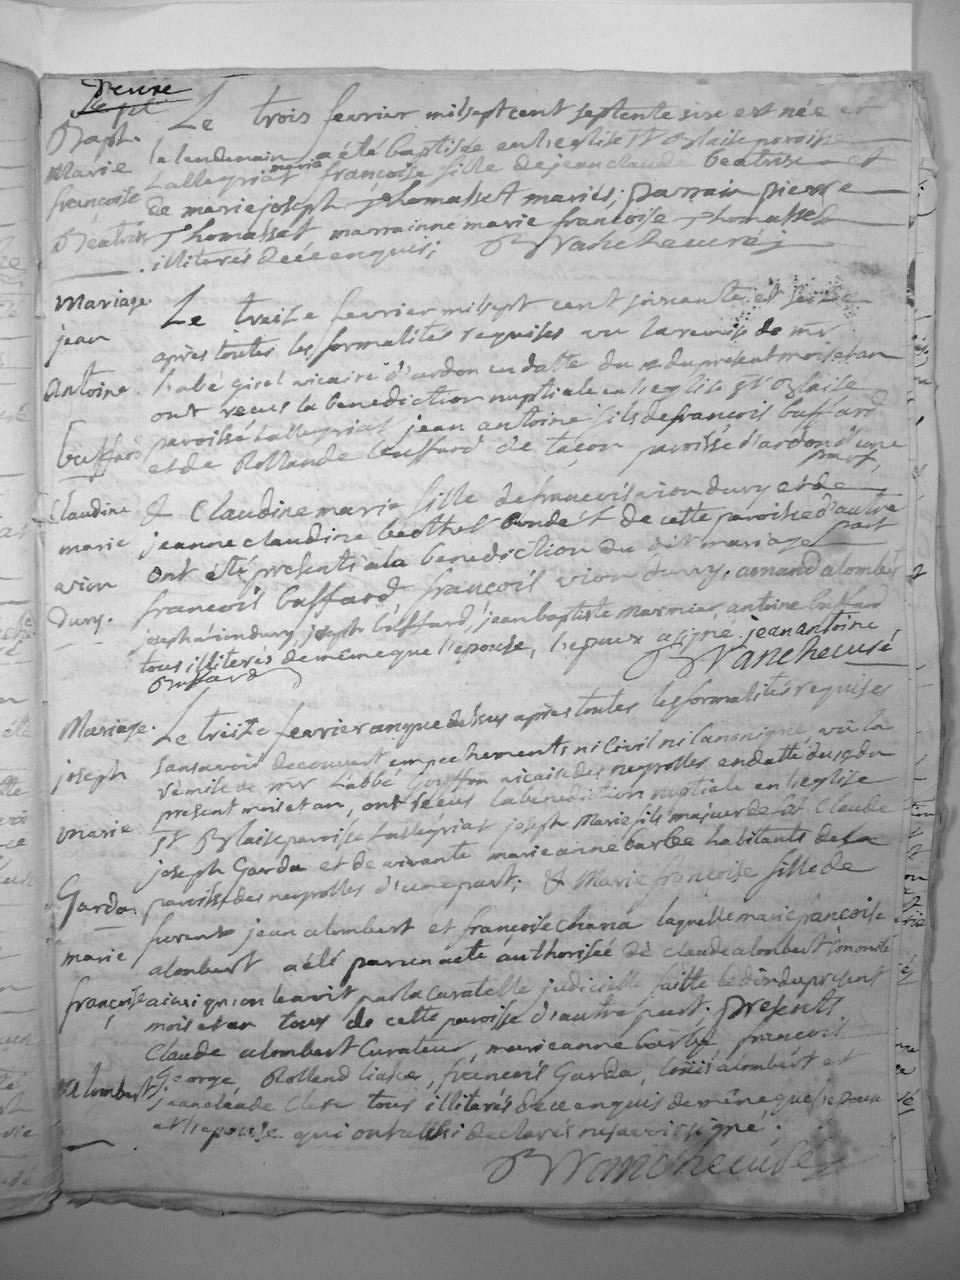 Bapt.
Marie
françoise
Beatrix
Le trois fevrier mil sept cent septente sixe est née et
le lendemain a été baptisée en l'eglise St Blaise paroisse
Lallegriat marie françoise fille de jean claude Beatrixe et
de marie joseph Thomasset mariés; parrain pierre
Thomasset marrainne marie francoise Thomasset
illiterés de ce enquis; Vanchecuré
Mariage
jean
Antoine
buffard
Claudine
marie
vion
Dury.
Le treise fevrier mil sept cent soissante et seise
après toutes les formalités requises vu la remise de mr
l'abé girel vicaire d'ardon en datte du du present mois et an
ont recus la benediction nuptiale en l'eglise St Blaise
paroisse Lallegriat jean antoine fils de françois buffard
et de Rollande buffard de tacon paroisse d'ardon d'une
part,
& Claudine marie fille de francois vion dury et de
jeanne claudine berthet de cette paroisse d'autre
part
ont été presents à la benediction du dit mariage
francois buffard françois vion dury, armand alombert
joseph vion dury, joseph buffard, jean baptiste marmier, antoine buffard
tous illiterés de même que l'epouse, l'epoux a signé jean antoine
Buffard Vancheuré
Mariage.
joseph
marie
Garda
marie
françoise
alombert
Le treise fevrier an que dessus après toutes les formalités requises
sans avoir decouvert empechements ni Civil ni Canonique, vû la
remise de mr L'abbé vicaire des neyrolles en datte du du
present mois et an, ont recus la bénédiction nuptiale en l'eglise
St Blaise paroisse Lallegriat joseph Marie fils majeur de fût Claude
joseph Garda et de vivante marie anne barbe habitants de la
paroisse des neyrolles d'une part; & Marie françoise fille de
furent jean alombert et françoise Chana laquelle marie françoise
alombert a été par un acte authorisée de claude alombert
ainsi qu'on le avit par la Curatelle judicielle faitte le du present
mois et an tous de cette paroisse d'autre part. Presents
Claude alombert Curateur, marie anne barbe francois
George, Rolland, françois Garda, louis alombert et
jean claude Clerc tous illiterés de ce enquis de même que l'epoux
et l'epouse qui ont aussi declarés ne savoir signé;
Vancheuré